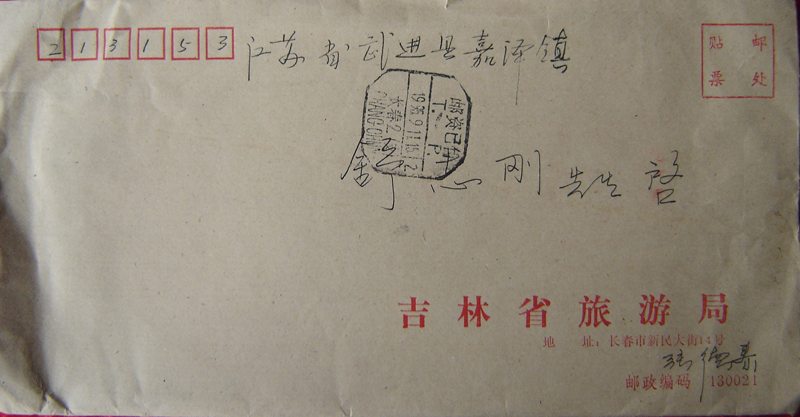 213153
江苏省武进县嘉泽镇
贴 邮
票 处
邮资已付
T. P.
长春2
CHANG CHUN
舒心刚 先生 启
吉林省旅游局
地 址：长春市新民大街14号
邮政编码 130021